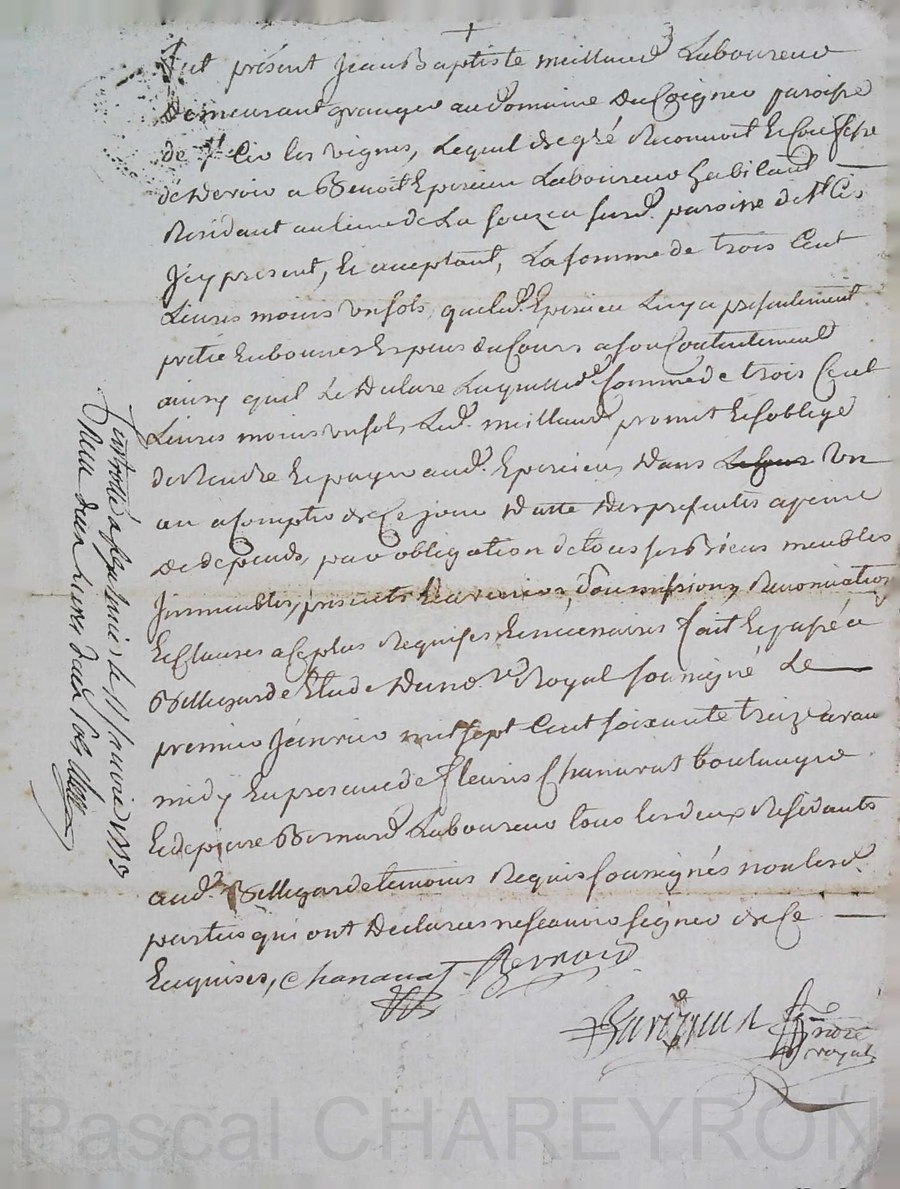 +
fut présent Jean Baptiste meilland Laboureur
demeurant granger au domaine du Coignier paroisse
de st Cir les vignes, Lequel de gré Reconnoit Et Confesse
de devoir a Benoit Eperieu Laboureur habitant
Residant au lieu de La fouzea surd. paroisse de st Cir
Jcy present, Et acceptant, La somme de trois Cent
Livres moins un sols, que led. Eperieu Luy a presentement
preté En bonnes Especes du Cours a son Contentement
ainsy quil Le declare Laquelle somme de trois Cent
Livres moins un sols, Led. meilland promet Et soblige
de Rendre Et payer aud. Eperieu, dans un
an a Compter de Ce jour datte des presentes a peine
de depends, par obligation de tous ses Biens meubles
Jmmeubles, presents Et avenirs, soumissions, Renonciations
Et Clauses a Ce plus Requises Et necessaires fait Et passé a
Bellegarde Etude du no.re Royal soussigné Le
premier Janvier mil sept Cent soixante treize avant
midy En presence de fleuris Chanavat boulanger
Et de pierre Bernard Laboureur tous les deux Residants
aud. Bellegarde temoins Requis soussignés non les d.
parties qui ont declarees ne scavoir signer de Ce
Enquises, Chanavat Bernard
nore
royal
le 11 Janvier 1773
Reçu
Pascal CHAREYRON